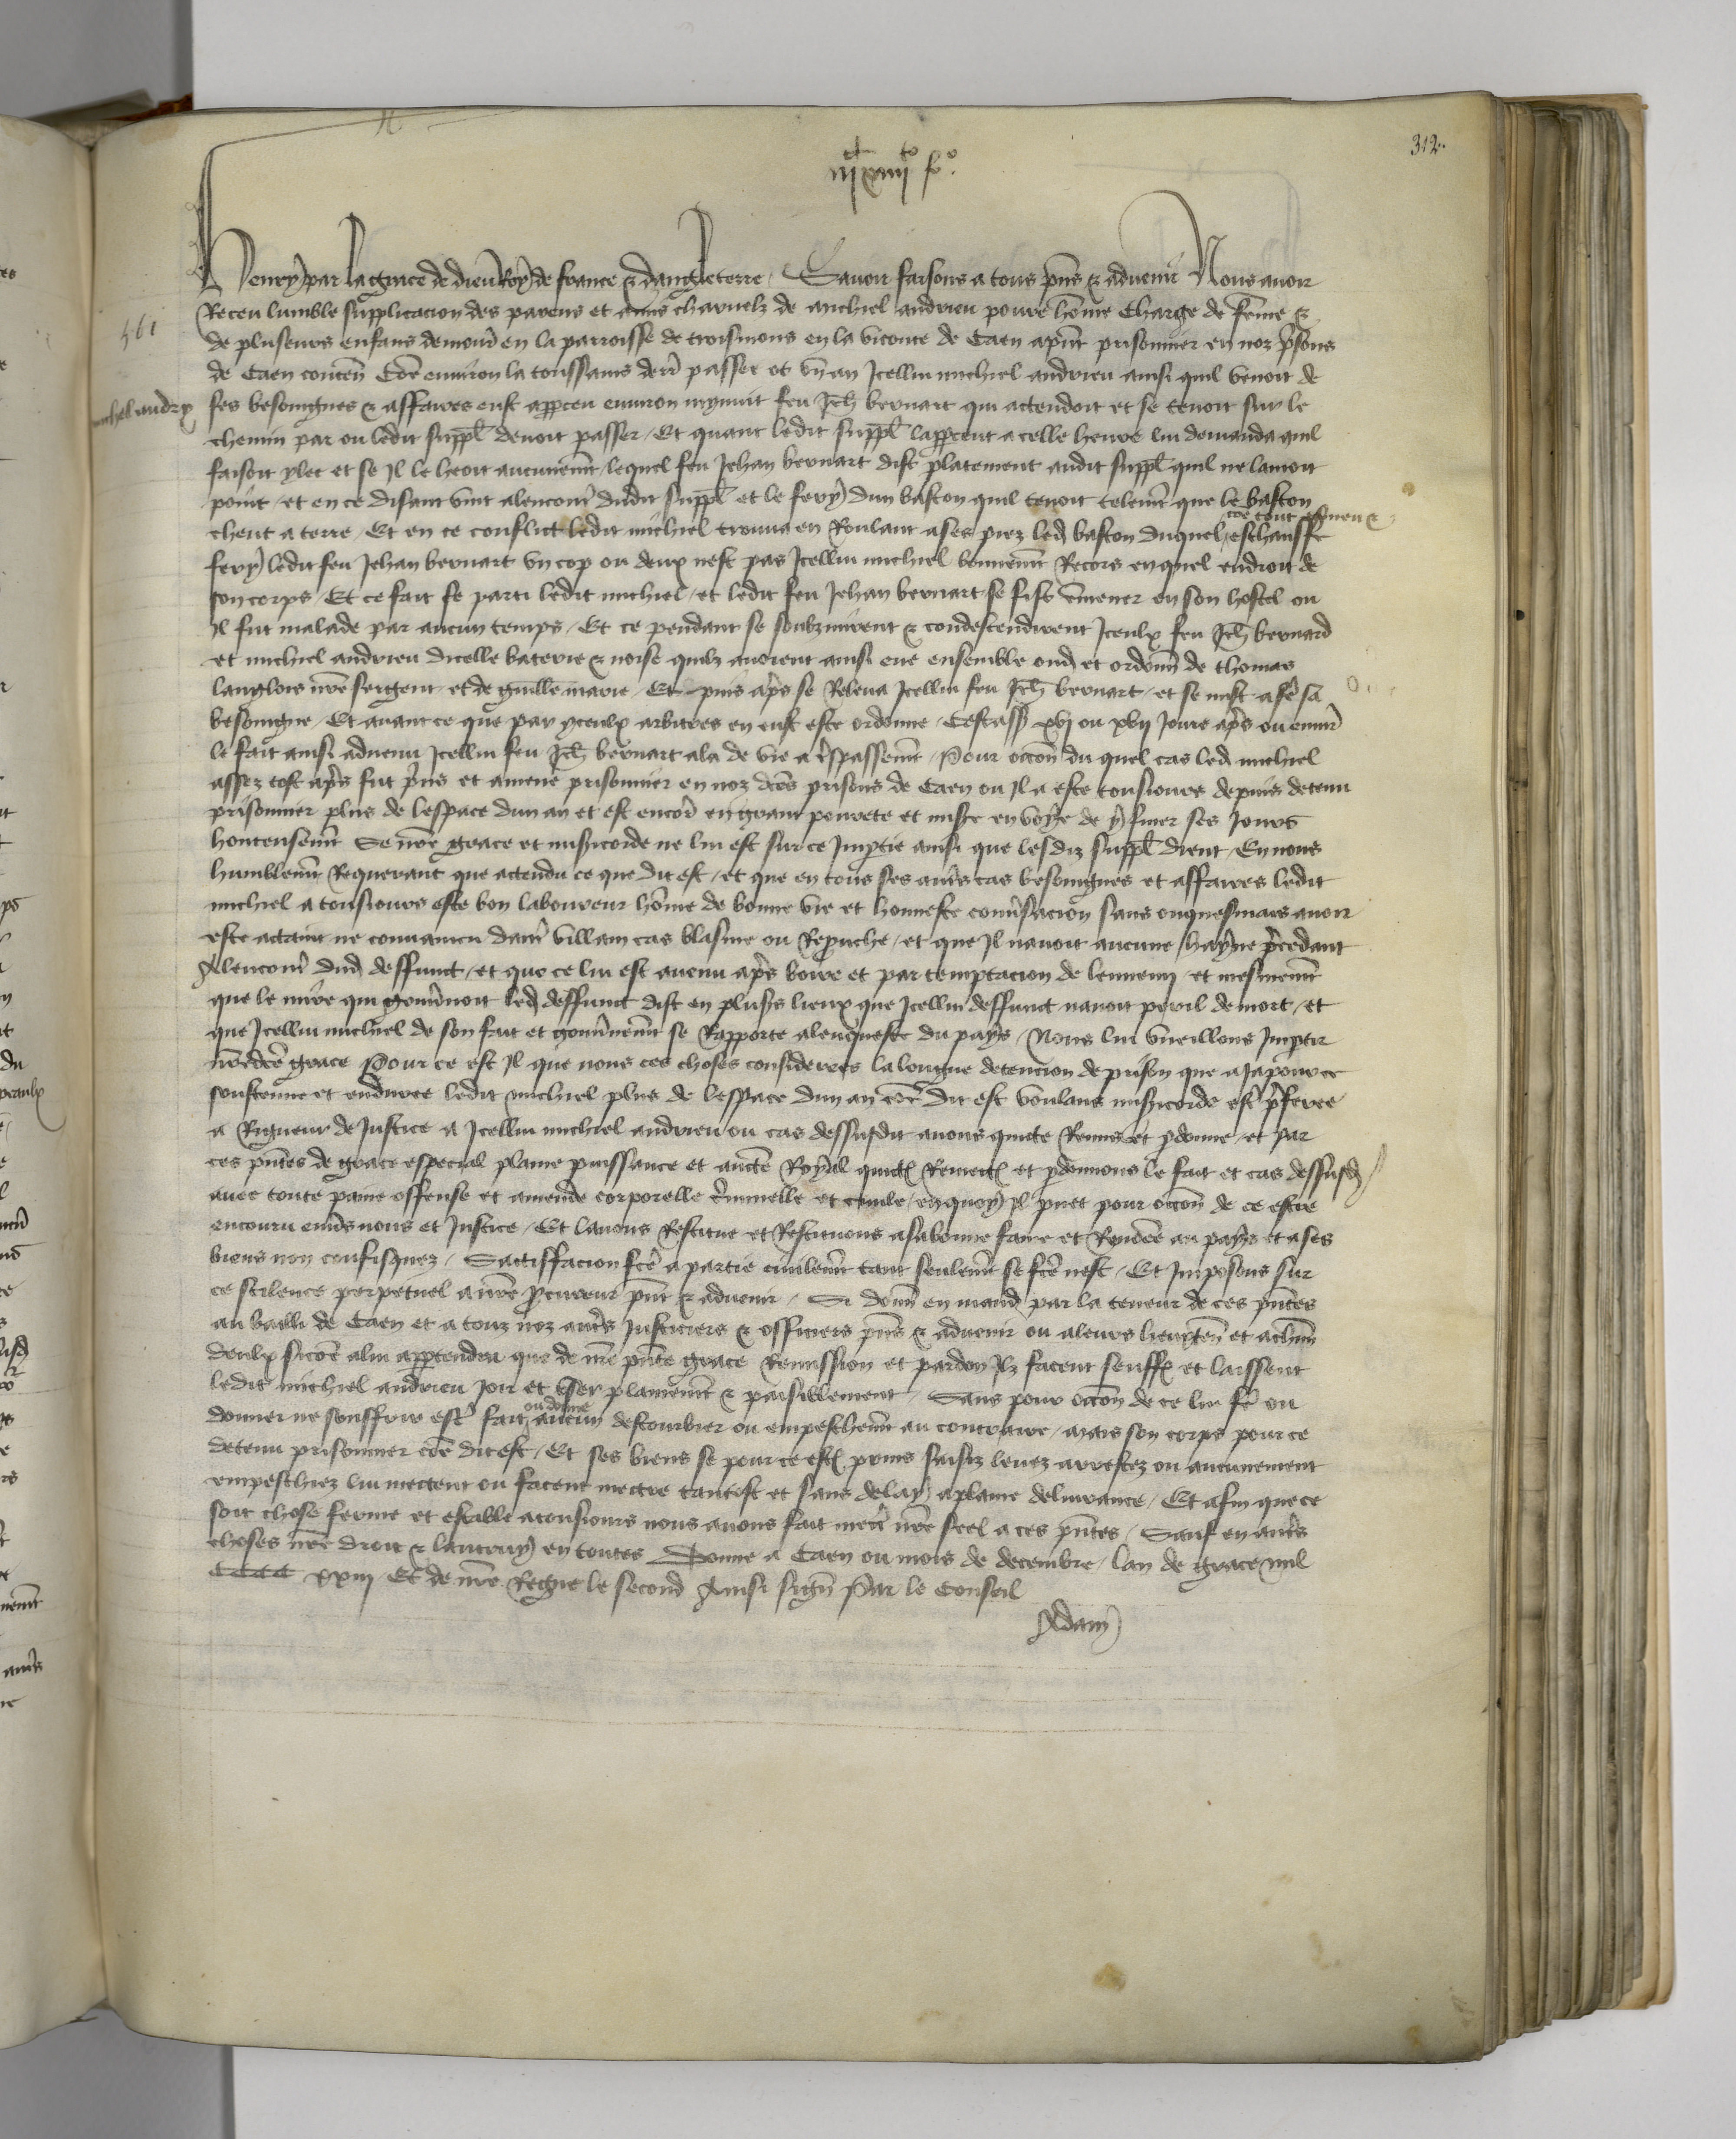 312.
iijᶜ xiiijᵗᵒ fᵒ.
Henry par la grace de dieu Roy de france & dangleterre / Savoir faisons a tous pñs & advenir Nous avoir
561
Receu lumble supplicacion des parens et amis charnelz de michiel andrieu povre hõme Charge de fẽme &
de pluseurs enfans demour̃ en la parroisse de troismons en la viconte de Caen apñt prisonnier en noz p̃sons
de Caen conteñ Cõe environ la toussains derr̃ passee ot vñ an Icellui michiel andrieu ainsi quil venoit de
michel andry
ses besoingnes & affaires eust apperceu environ mynuit feu Jeh̃ bernart qui actendoit et se tenoit sur le
chemin par ou ledit suppl̃ devoit passer / Et quant ledit suppl̃ lapperceut a celle heure lui demanda quil
faisoit ylec et se Il le heoit aucunemẽt / lequel feu Jehan bernart dist platement audit suppl̃ quil ne lamoit
point / et en ce disant vint alencontr̃ dudit suppl̃ et le fery dun baston quil tenoit telemẽt que le baston
cheut a terre / Et en ce conflict ledit michiel trouva en Roulant a ses piez led baston duquel cõe tout esmeu & eschauffe
fery ledit feu Jehan bernart vn cop ou deux nest pas Icellui michiel bonnemẽt Recors en quel endroit de
son corps / Et ce fait se parti ledit michiel / et ledit feu Jehan bernart se fist ẽmener en son hostel ou
Il fut malade par aucun temps / Et ce pendant se soubzmirent & condescendirent Iceulx feu Jeh̃ bernard
et michiel andrieu dicelle baterie & noise quilz avoient ainsi eue ensemble ond et ordoñ de thomas
langlois nr̃e sergent et de guille marie / Et puis apr̃s se Releva Icellui feu Jeh̃ bernart / et se mist a fẽ sa
besoingne / Et avant ce que par yceulx arbitres en eust este ordonne / Cestass xvj ou xvij Jours apr̃s ou envir̃
le fait ainsi advenu Icellui feu Jeh̃ bernart ala de vie a tr̃spassemẽt / Pour occoñ du quel cas led michiel
assez tost apr̃s fut pr̃ns et amene prisonnier en noz dc̃es prisons de Caen ou Il a este tousiours depuis detenu
prisonnier plus de lespace dun an et est encor̃ en grant povrete et miser̃ en voye de y finer ses Jours
honteusemẽt Se nr̃e grace et mis̃icorde ne lui est sur ce Impartie ainsi que lesdiz suppl̃ dient / En nous
humblemẽt Requerant que actendu ce que dit est / et que en tous ses aut̃s cas besoingnes et affaires ledit
michiel a tousiours este bon laboureur hõme de bonne vie et honneste conṽsacion sans onquesmais avoir
este actaint ne convaincu daut̃ villain cas blasme ou Reprouche / et que Il navoit aucune hayne pr̃cedant
Alencontr̃ dud deffunct / et que ce lui est avenu apr̃s boire et par temptacion de lennemy et mesmemẽt
que le mire qui gouṽnoit led deffunct dist en plus̃s lieux que Icellui deffunct navoit peril de mort / et
que Icellui michiel de son fait et gouṽnemẽt se Rapporte a lenqueste du pays / Nous lui vueillons Impartir
nr̃edc̃e grace Pour ce est Il que nous ces choses considerees la longue detencion de prison que a Ja pour ce
soustenue et enduree ledit michiel plus de lespace dun an cõe dit est voulans mis̃icorde estr̃ pr̃feree
a Rigueur de Justice a Icellui michiel andrieu ou cas dessusdit avons quicte Remis et pardonne / et par
ces pñtes de grace especial plaine puissance et auctẽ Royal quict̃ Remect̃ et pardonnons le fait et cas dessusd
avec toute paine offense et amende corporelle cr̃iminelle et civile / en quoy Il puet pour occoñ de ce estre
encouru enṽs nous et Justice / Et lavons Restitue et Restituons a sa bonne fame et Renõee au pays et a ses
biens non confisquez / Sattisfacion fc̃e a partie civilemẽt tant seulemẽt se fc̃e nest / Et Imposons sur
ce scilence perpetuel a nr̃e procureur pñt & advenir / Si donñ en mand par la teneur de ces pñtes
au bailli de Caen et a touz noz aut̃s Justiciers & officiers pñs & advenir ou a leurs lieuxteñ et a chũn
deulx sicõe a lui appartendra que de nr̃e pñte grace Remission et pardon Ilz facent seuffr̃ et laissent
ledit michiel andrieu Joir et User plainemẽt & paisiblement / Sans pour occoñ de ce lui fẽ ou
donner ne souffrir estr̃ fait ou dõne aucun destourbier ou empeschemẽt au contraire / mais son corps pour ce
detenu prisonnier cõe dit est / Et ses biens se pour ce est̃ prins saisiz levez arrestez ou aucunement
empeschiez lui mectent ou facent mectre tantost et sans delay a plaine delivrance / Et afin que ce
soit chose ferme et estable a tousiours nous avons fait mectr̃ nr̃e seel a ces pñtes / Sauf en aut̃s
choses nr̃e droit & lautruy en toutes Donne a Caen ou mois de decembre / lan de grace mil
CCCC xxiij Et de nr̃e Regne le second Ainsi signẽ Par le Conseil
Adam